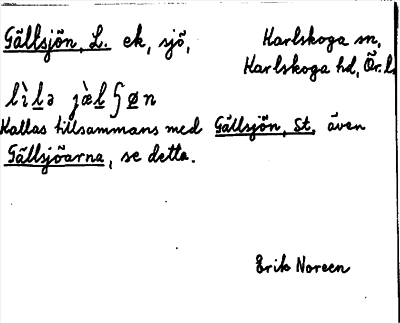 Gällsjön, L. ek, sjö, Karlskoga sn,
Karlskoga hd, Ör. l.
lìlə jæ̀lʃøn
Kallas tillsammans med Gällsjön, St. även
Gällsjöarna, se detta.
Erik Noreen